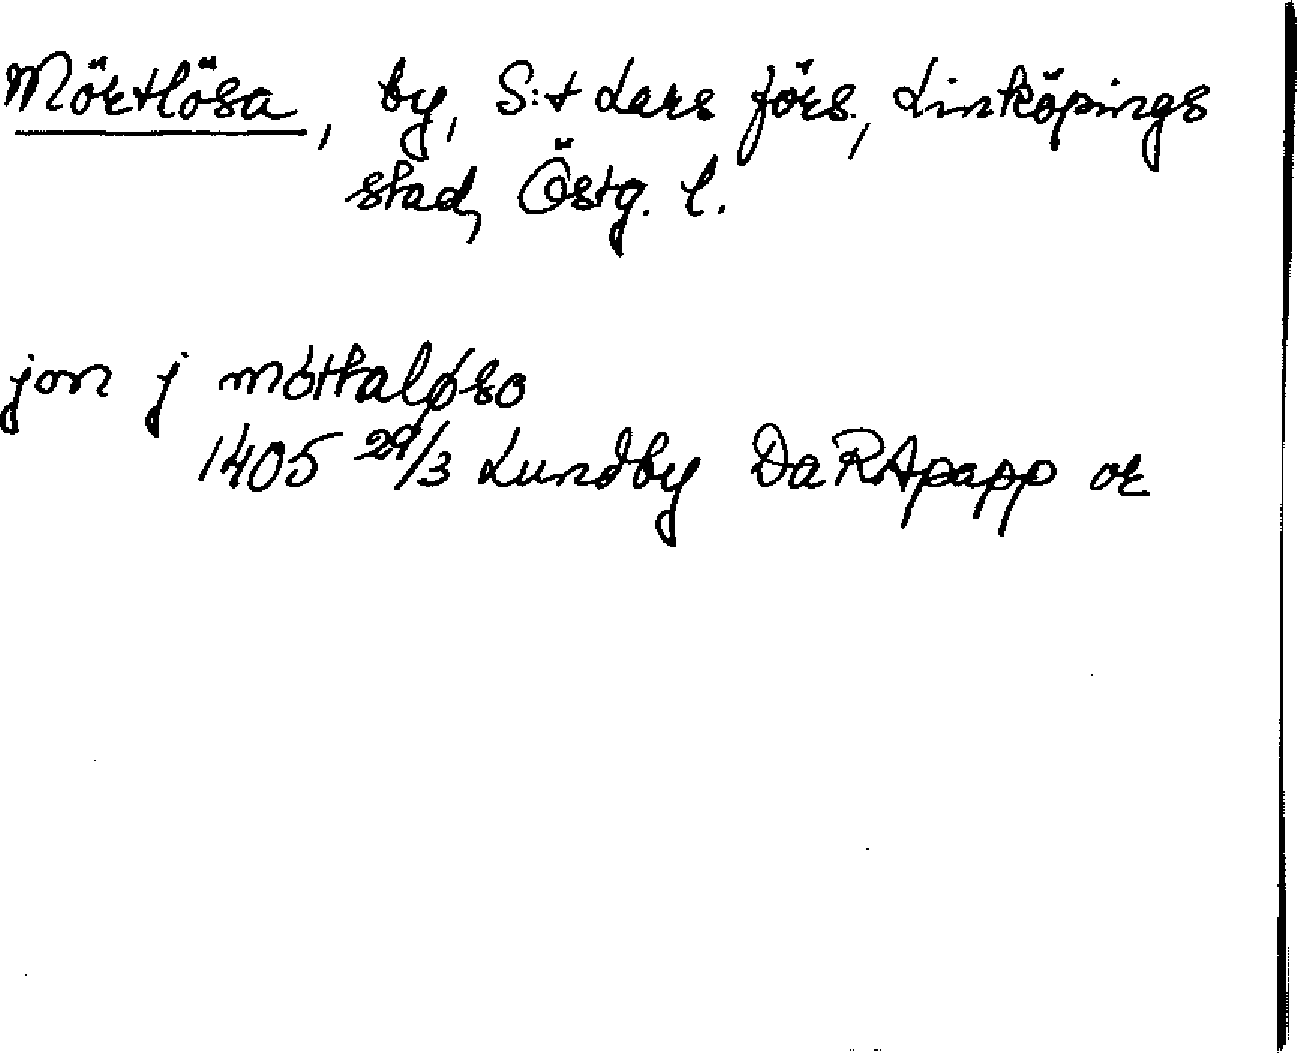 Mörtlösa, by, S:t Lars förs., Linköpings
stad, Östg. l.
jon j móthaløso
1405 29/3 Lundby Da RApapp or